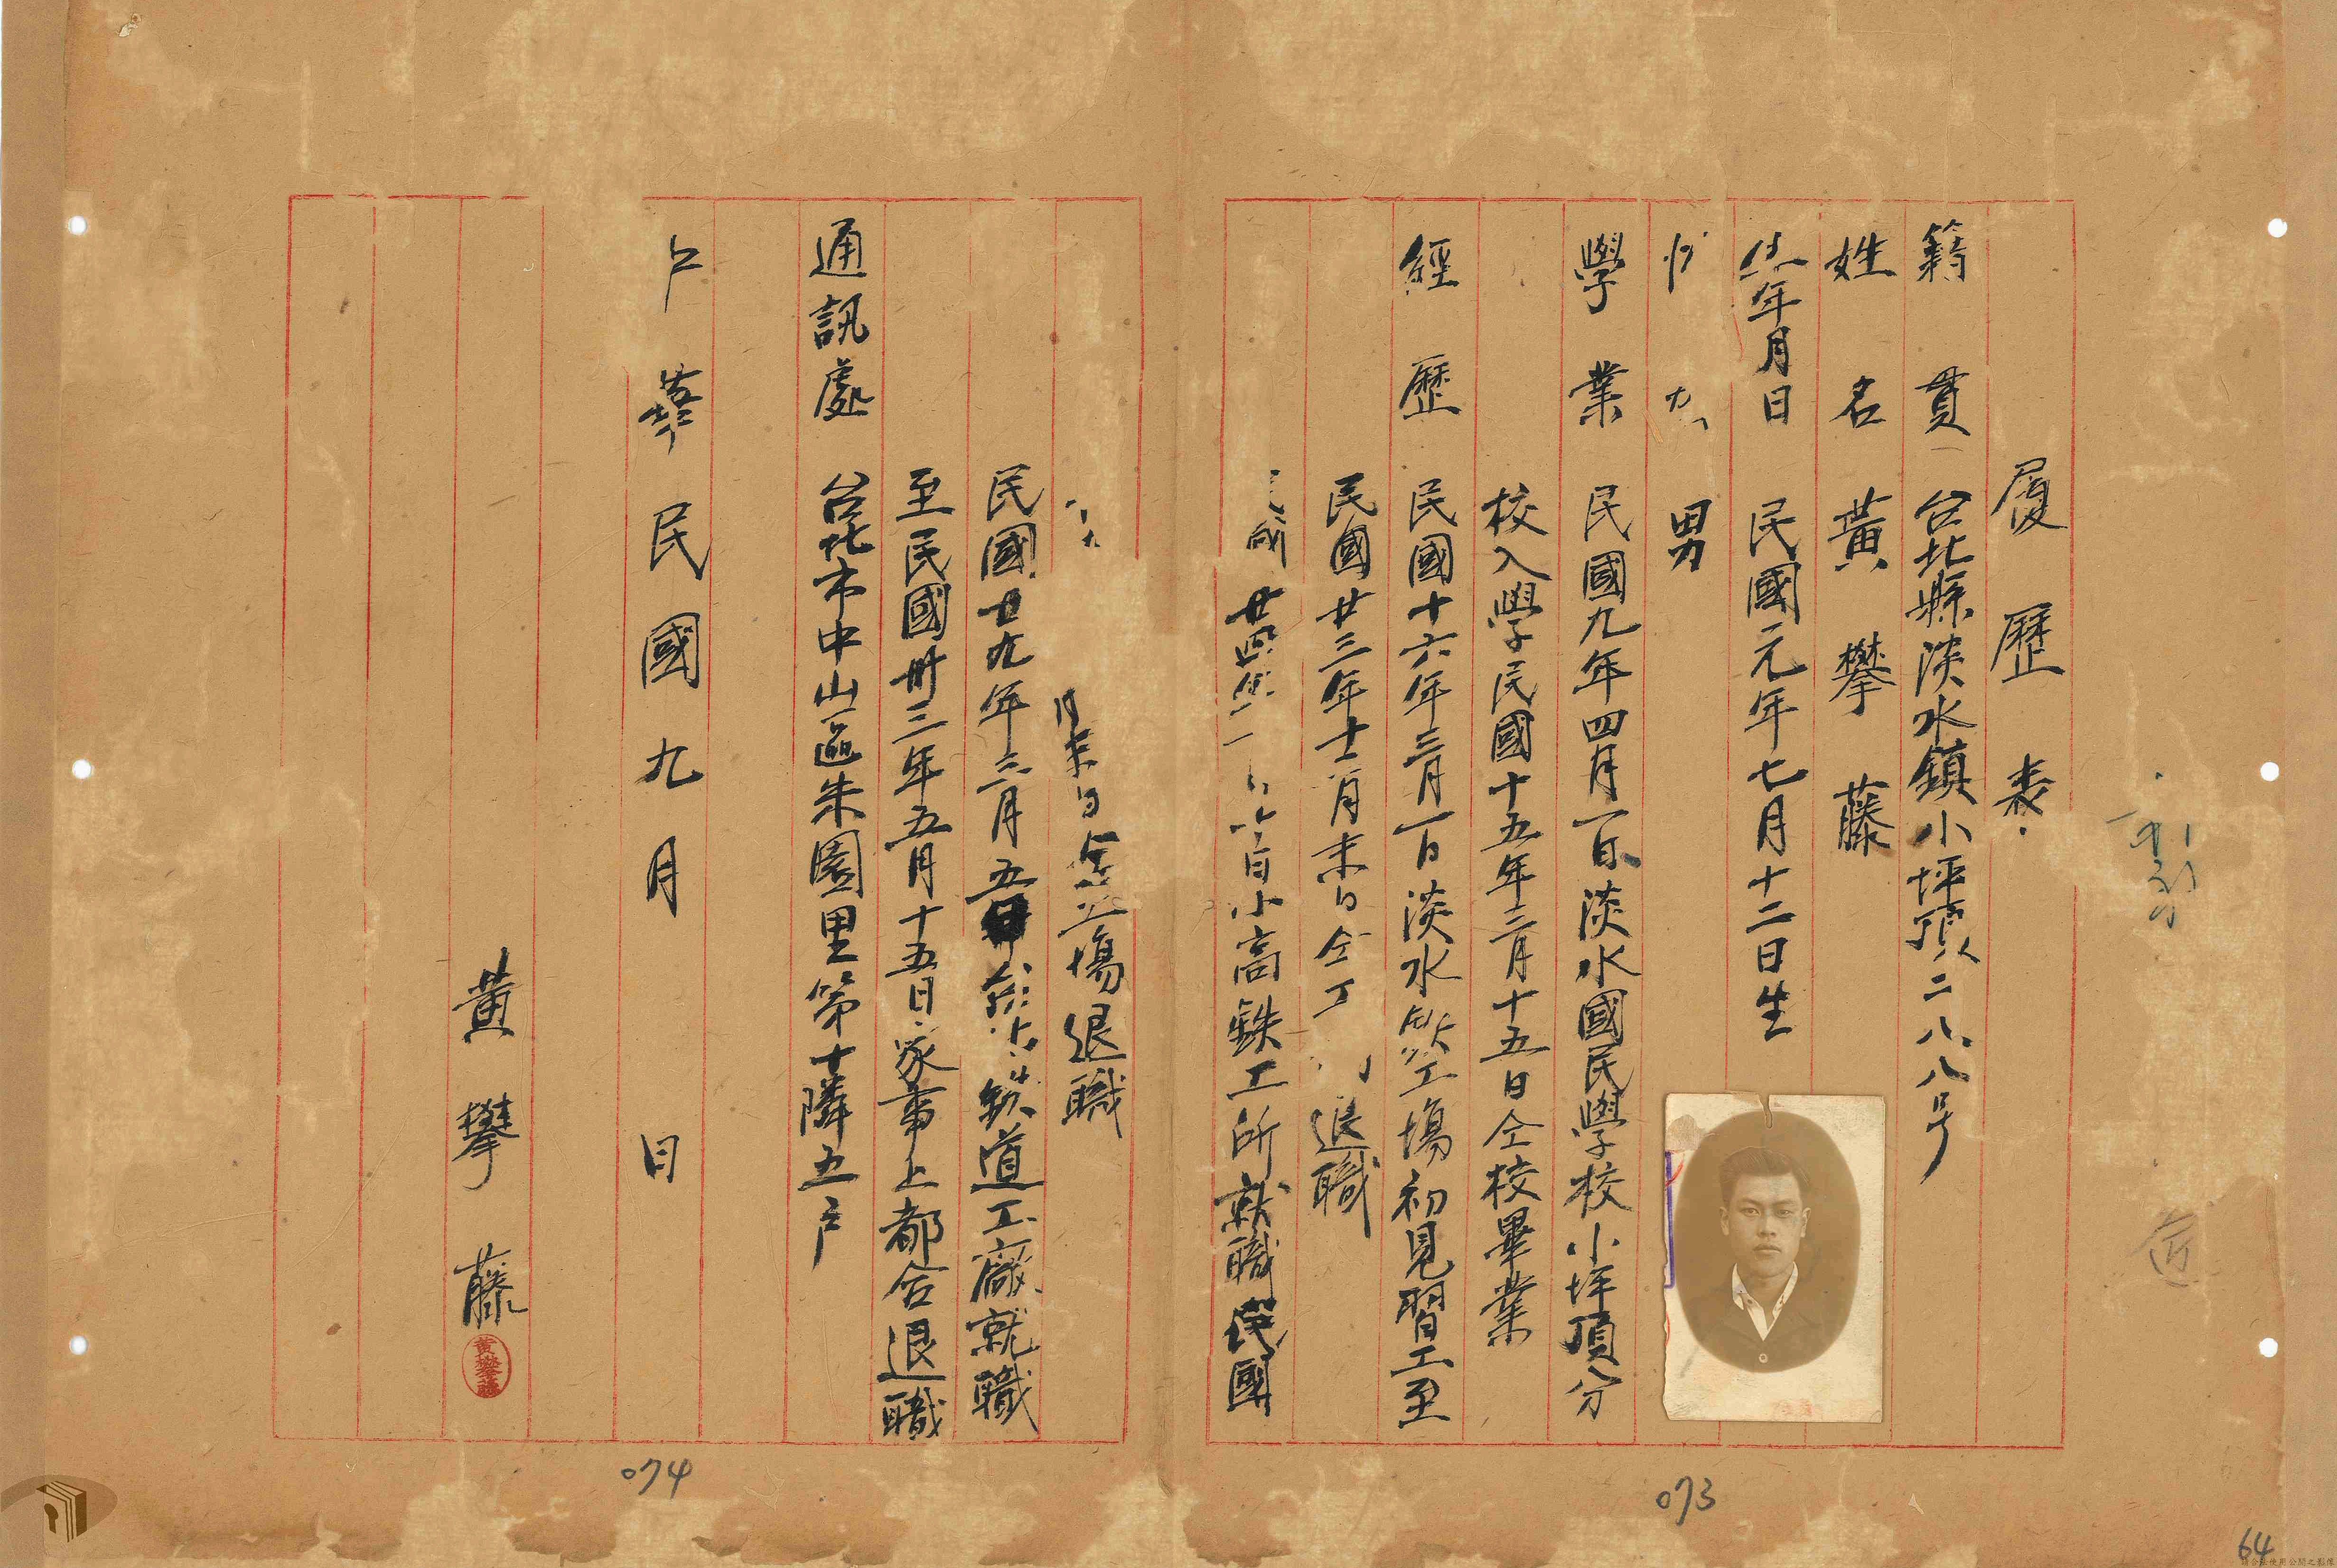 履歷表
籍貫 台北縣淡水鎮小坪頂二八八号
姓名 黃攀藤
生年月日 民國元年七月十二日生
男
學業 民國九年四月一日淡水國民學校小坪頂分
校入學民國十五年三月十五日仝校畢業
經歷 民國十六年三月一日淡水工場初見習工至
民國廿三年十二月末日仝工退職
廿四年小高鉄工所就職民國
月末日工場退職
民國廿九年三月五日鉄道工廠就職
至民國卅三年五月十五日家事上都合退職
通訊處 台北市中山區朱園里第十隣五戶
華民國九月 日
黃攀藤
黃攀藤
074
073
64